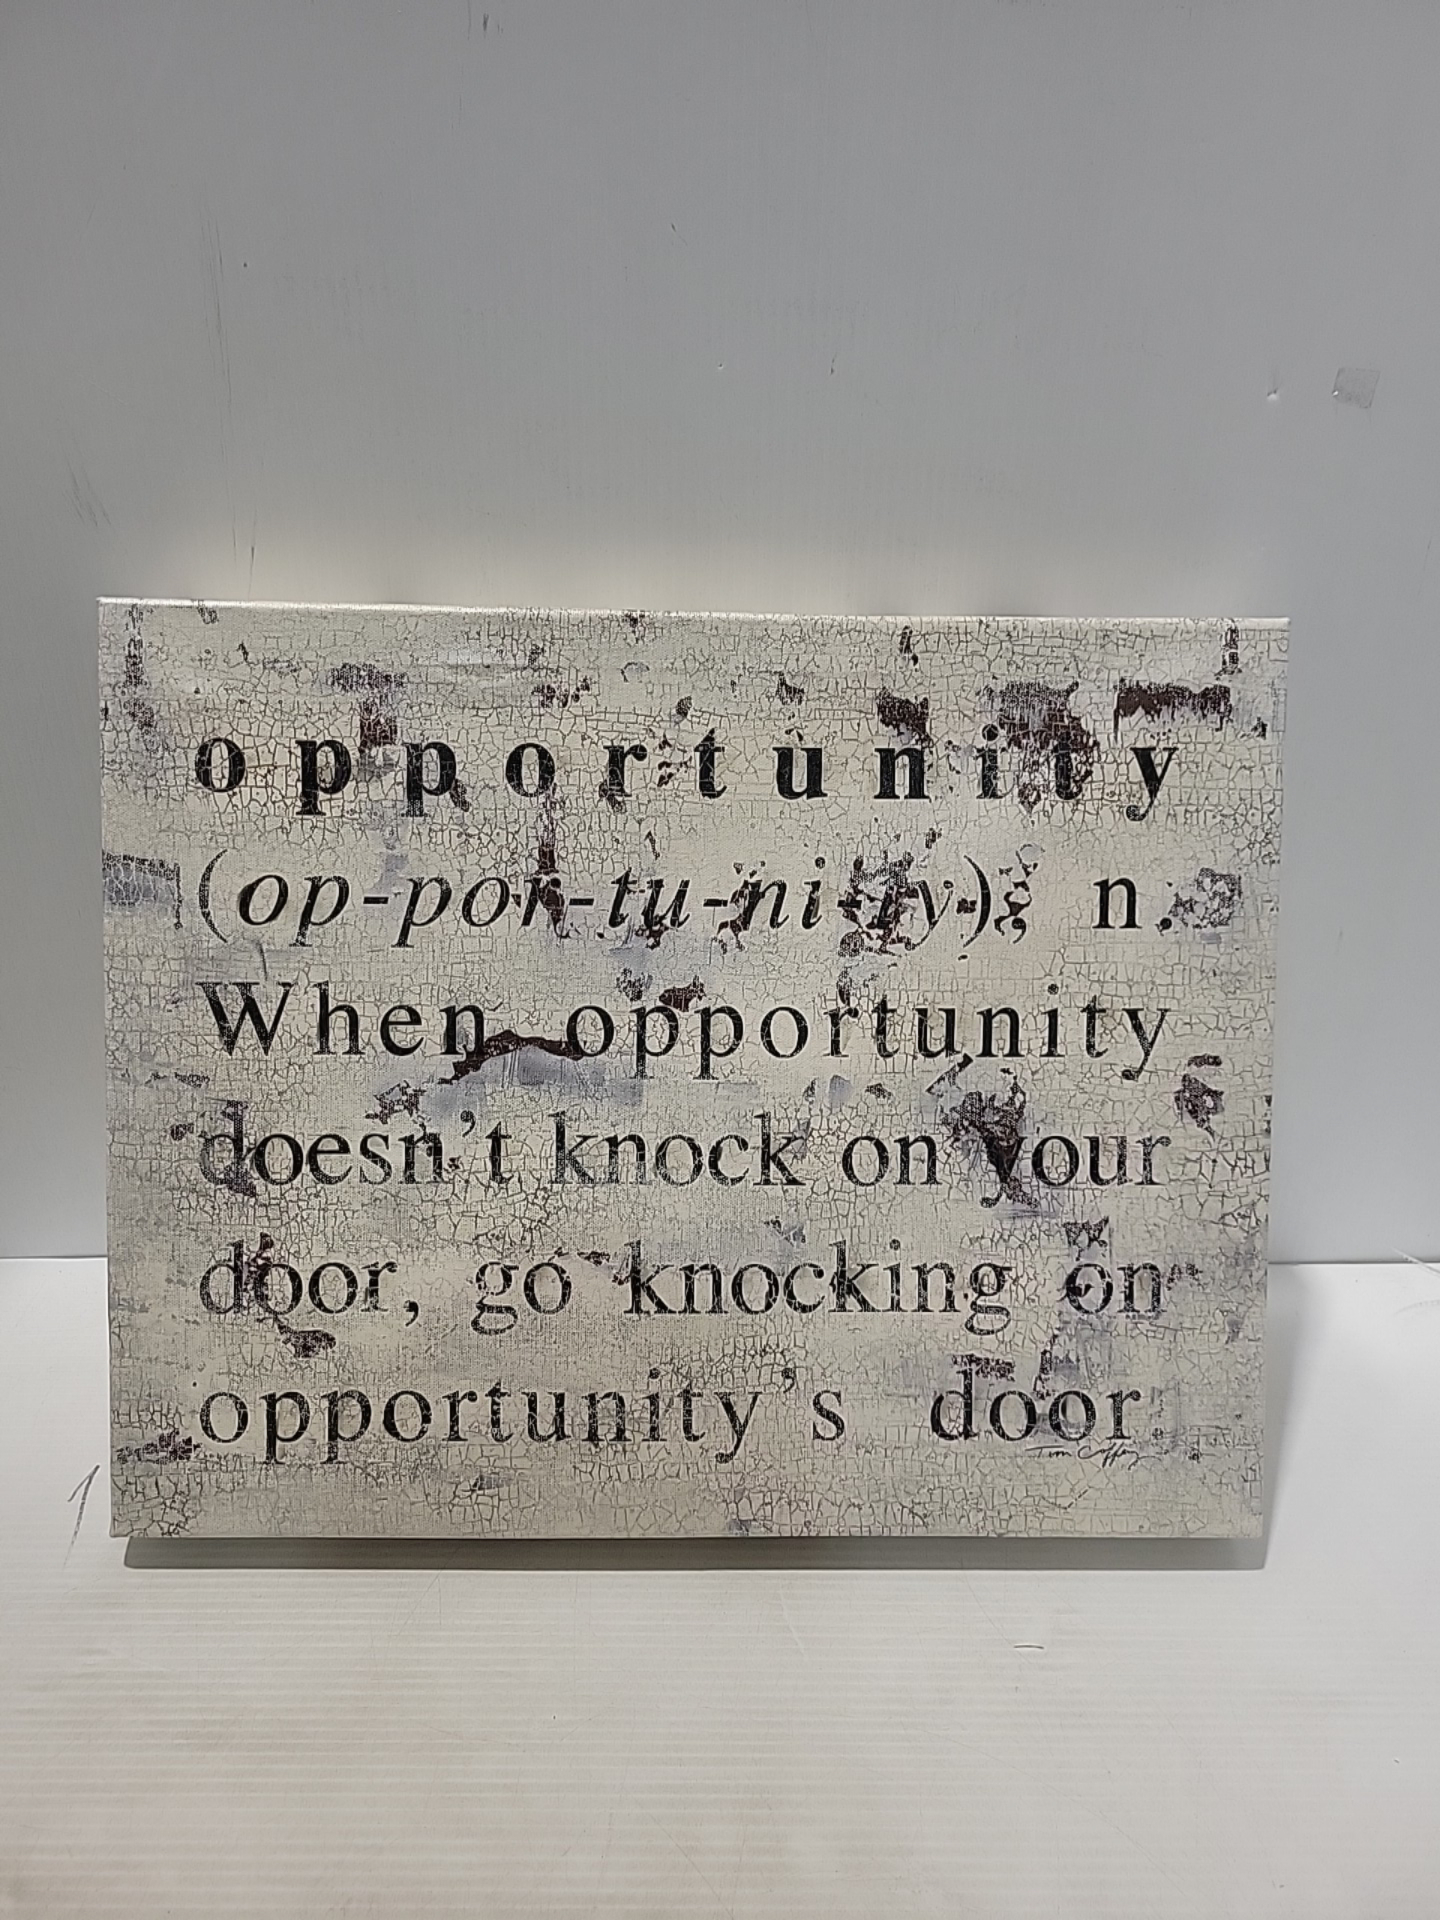 opportunity
(op-por-tu-ni-ty); n.
When opportunity
doesn't knock on your
door, go knocking on
opportunity's door
Tim Coffey